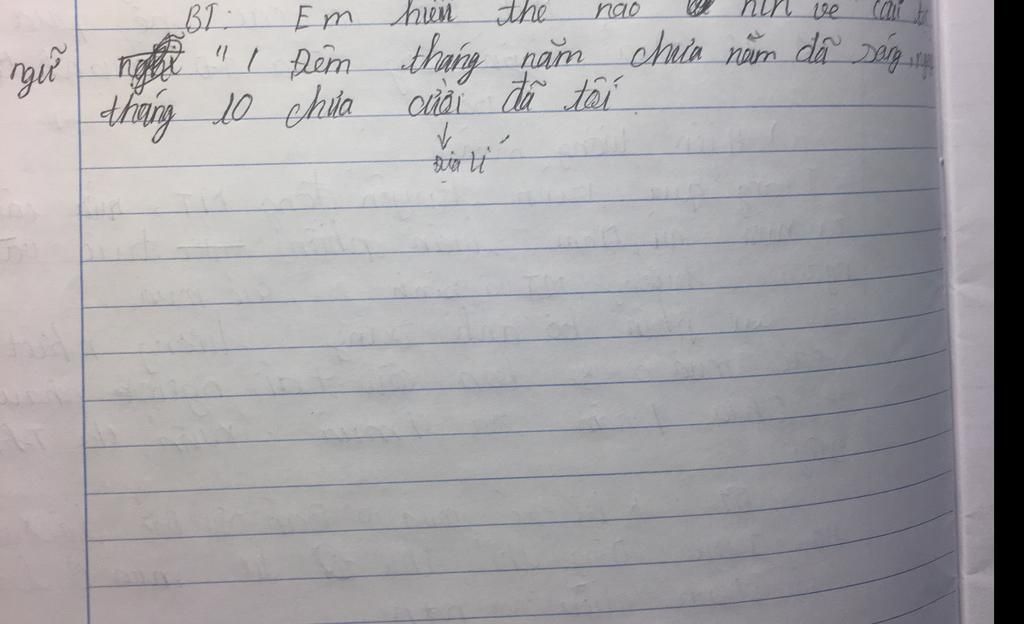 BT: Em hiểu thế nào
ngữ " 1 Đêm tháng năm chưa nằm đã sáng,
tháng 10 chưa cười đã tối
Địa lí